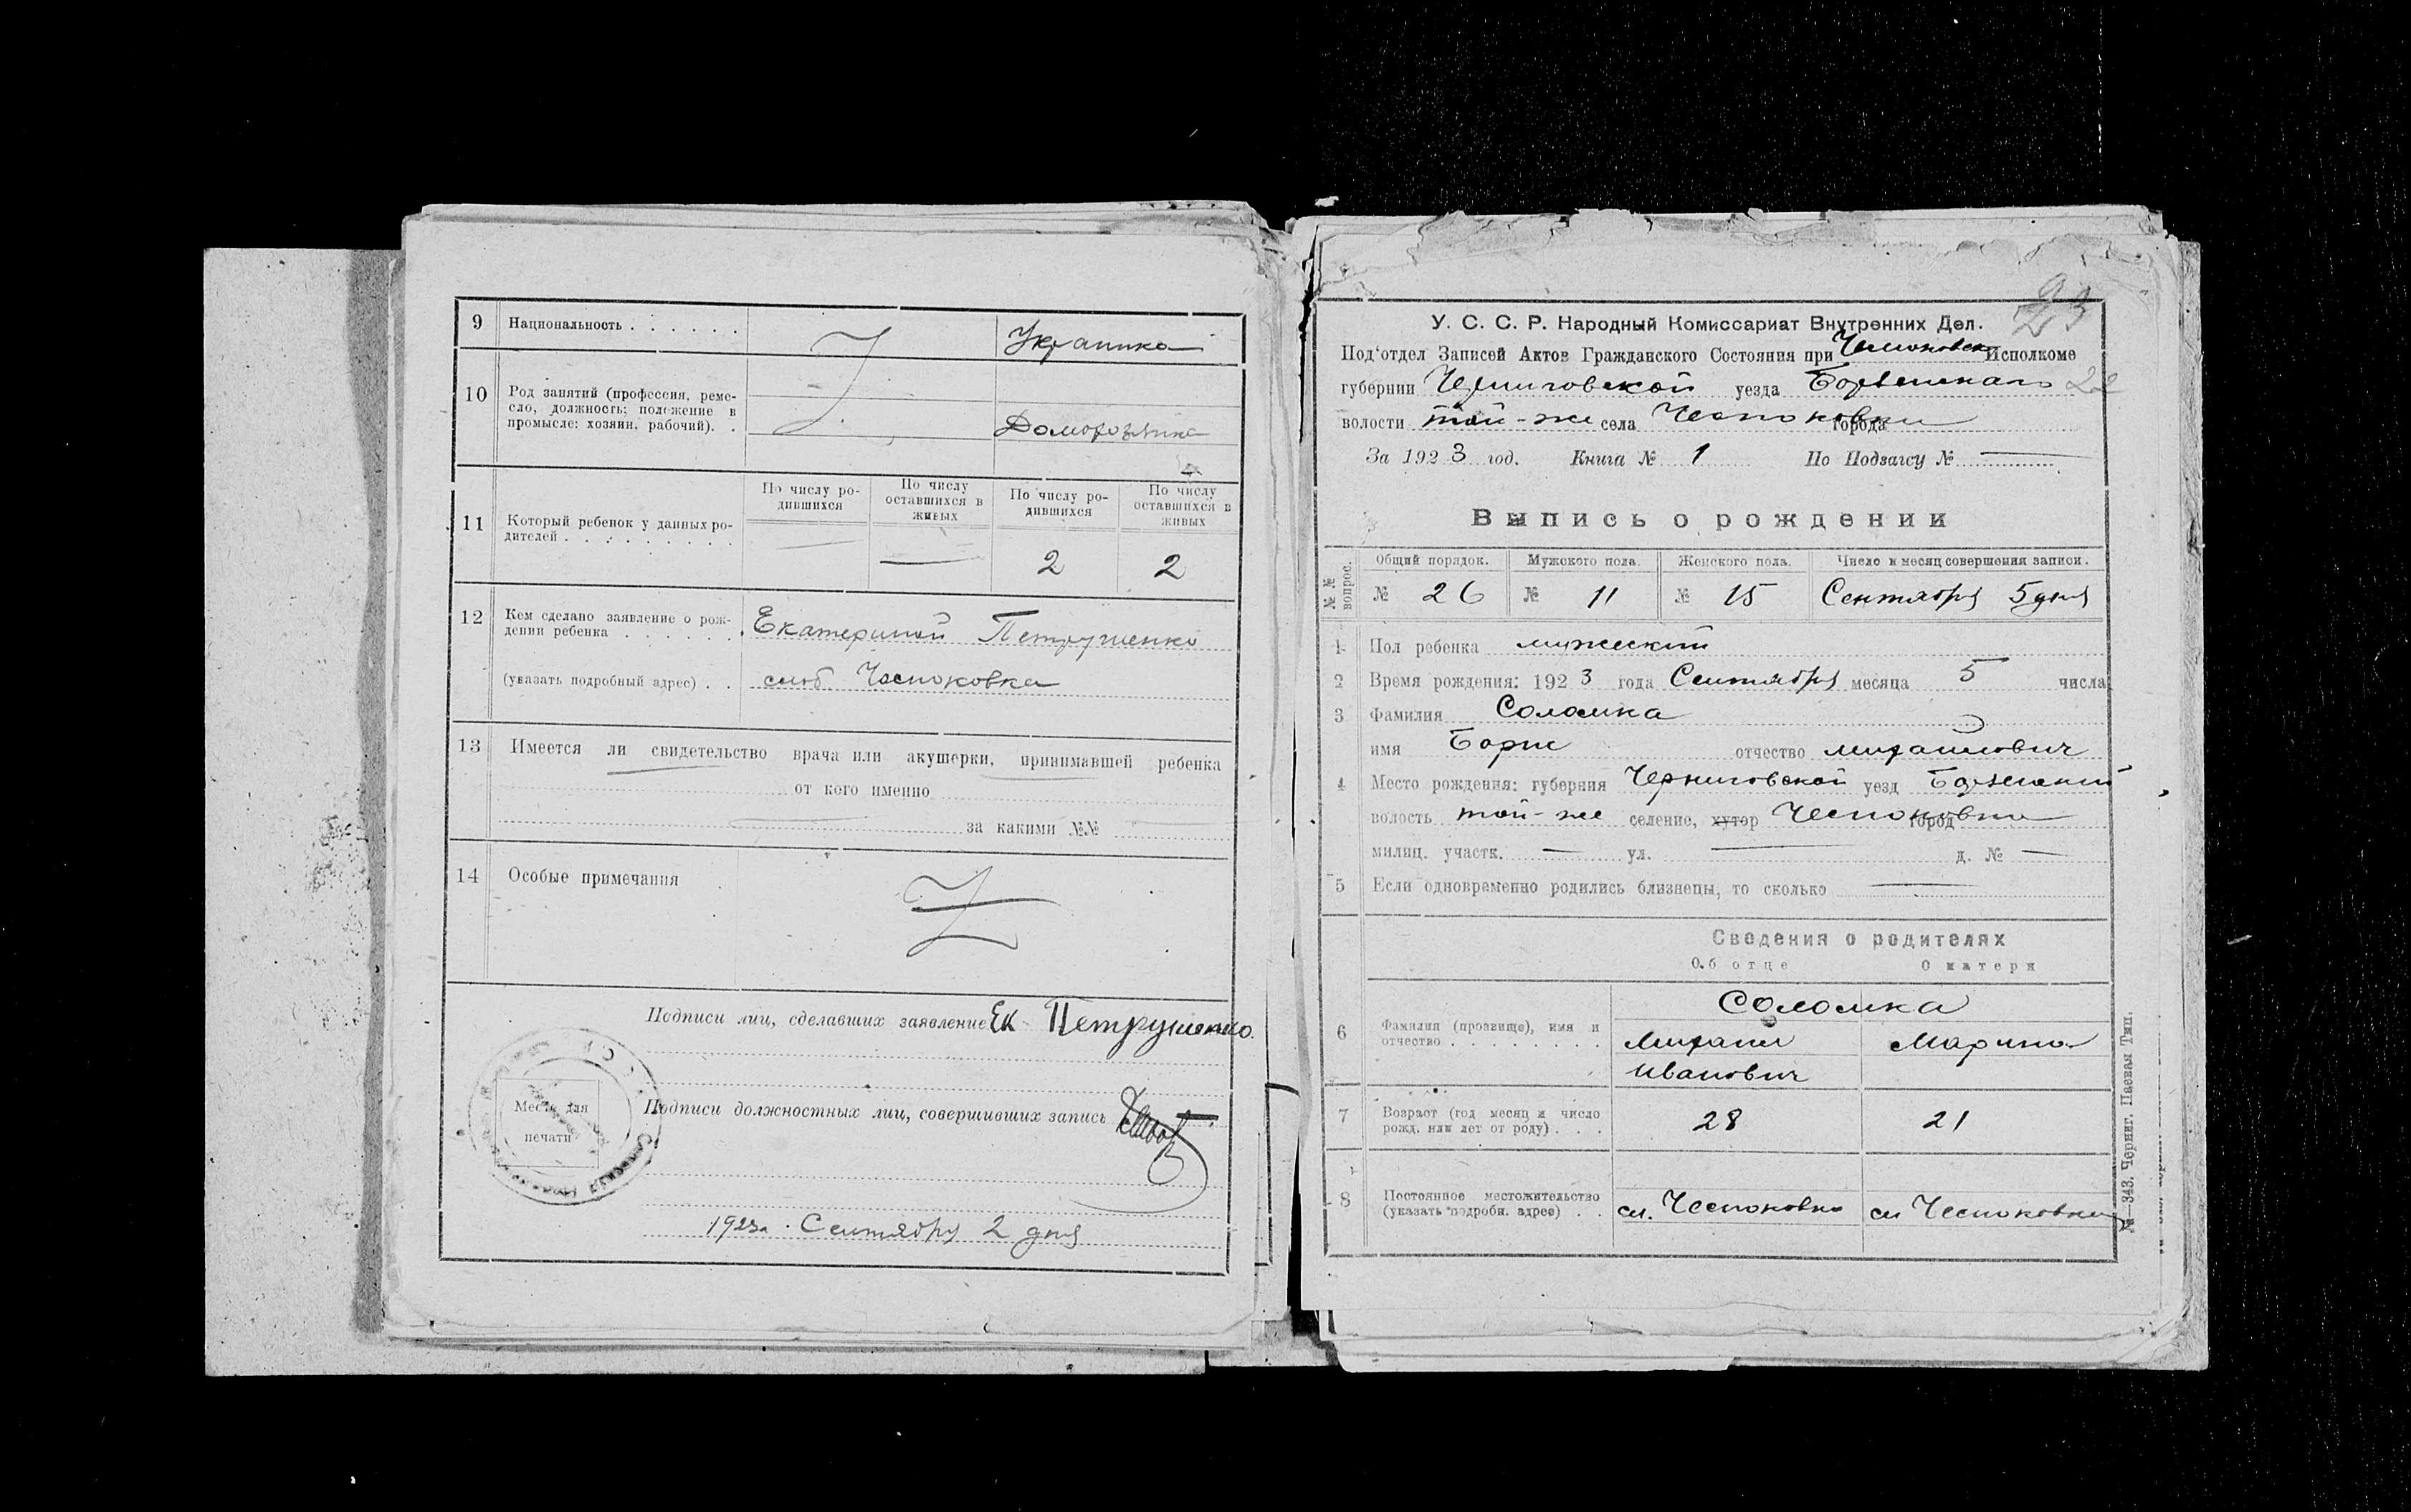 9 Национальность . . . . . . Украинка
10 Род занятий (профессия, реме-
сло, должность; положение в
промысле: хозяин, рабочий). . Домохозяйка
По числу ро-
дившихся
По числу
оставшихся в
живых
По числу ро-
дившихся
По числу
оставшихся в
живых
11 Который ребенок у данных ро-
дителей . . . . . . . . . — — 2 2
12 Кем сделано заявление о рож-
дении ребенка . . . . . . . Екатериной Петрушенко
(указать подробный адрес) . . слоб. Чесноковка
13 Имеется ли свидетельство врача или акушерки, принимавшей ребенка
от кого именно
за какими №№
14 Особые примечания
Подписи лиц, сделавших заявление Ек Петрушенко.
Место для
печати
Подписи должностных лиц, совершивших запись
1923г. Сентября 2 дня
23
У. С. С. Р. Народный Комиссариат Внутренних Дел.
Под'отдел Записей Актов Гражданского Состояния при Исполкоме
губернии Черниговской уезда Борзенскаго 22
волости той-же села Чесноковки города
За 1923 год. Книга № 1 По Подзагсу № —
Выпись о рождении
№№ вопрос. Общий порядок. Мужского пола. Женского пола. Число и месяц совершения записи.
№ 26 № 11 № 15 Сентября 5 дня
1 Пол ребенка мужеский
2 Время рождения: 1923 года Сентября месяца 5 числа
3 Фамилия Соломка
имя Борис отчество Михайлович
4 Место рождения: губерния Черниговской уезд Борзенский
волость той-же селение, хутор Чесноковка город
милиц. участк. — ул. — д. № —
5 Если одновременно родились близнецы, то сколько —
Сведения о родителях
Об отце О матери
Соломка
6 Фамилия (прозвище), имя и
отчество . . . . . . . . Михаил Марина
Иванович
7 Возраст (год месяц и число
рожд. или лет от роду) . . . 28 21
8 Постоянное местожительство
(указать подробн. адрес) . . сл. Чесноковка сл Чесноковка
№—343. Черниг. Паевая Тип.